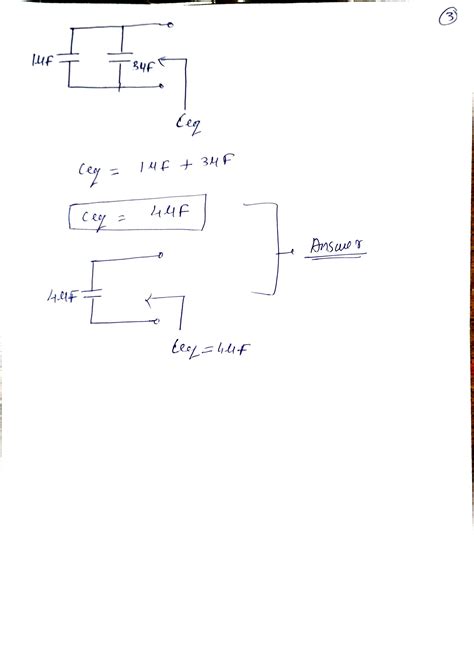 3
1μF
3μF
Ceq
Ceq = 1μF + 3μF
Ceq = 4μF
Answer
4μF
Ceq = 4μF